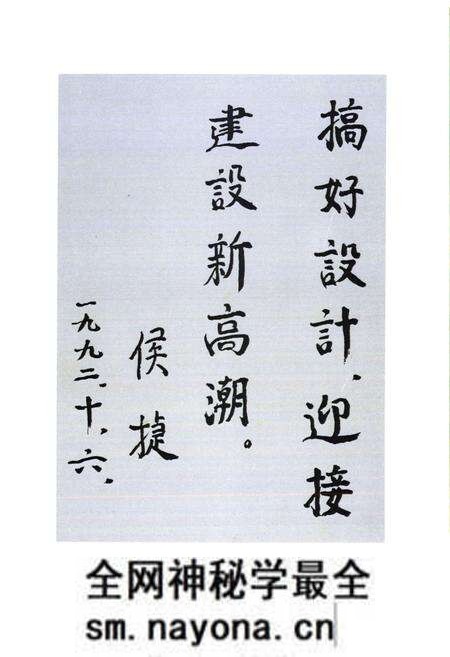 搞好設計、迎接
建設新高潮。
侯捷
一九九二、十、六、
全网神秘学最全
sm.nayona.cn